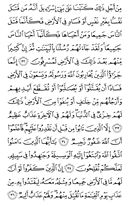 مِنْ أَجْلِ ذَٰلِكَ كَتَبْنَا عَلَىٰ بَنِىٓ إِسْرَٰٓءِيلَ أَنَّهُۥ مَن قَتَلَ
نَفْسًۢا بِغَيْرِ نَفْسٍ أَوْ فَسَادٍ فِى ٱلْأَرْضِ فَكَأَنَّمَا قَتَلَ
ٱلنَّاسَ جَمِيعًا وَمَنْ أَحْيَاهَا فَكَأَنَّمَآ أَحْيَا ٱلنَّاسَ
جَمِيعًا ۚ وَلَقَدْ جَآءَتْهُمْ رُسُلُنَا بِٱلْبَيِّنَٰتِ ثُمَّ إِنَّ كَثِيرًا
مِّنْهُم بَعْدَ ذَٰلِكَ فِى ٱلْأَرْضِ لَمُسْرِفُونَ ٣٢ إِنَّمَا
جَزَٰٓؤُا۟ ٱلَّذِينَ يُحَارِبُونَ ٱللَّهَ وَرَسُولَهُۥ وَيَسْعَوْنَ فِى ٱلْأَرْضِ
فَسَادًا أَن يُقَتَّلُوٓا۟ أَوْ يُصَلَّبُوٓا۟ أَوْ تُقَطَّعَ أَيْدِيهِمْ
وَأَرْجُلُهُم مِّنْ خِلَٰفٍ أَوْ يُنفَوْا۟ مِنَ ٱلْأَرْضِ ۚ ذَٰلِكَ
لَهُمْ خِزْىٌ فِى ٱلدُّنْيَا ۖ وَلَهُمْ فِى ٱلْءَاخِرَةِ عَذَابٌ عَظِيمٌ
٣٣ إِلَّا ٱلَّذِينَ تَابُوا۟ مِن قَبْلِ أَن تَقْدِرُوا۟ عَلَيْهِمْ ۖ فَٱعْلَمُوٓا۟
أَنَّ ٱللَّهَ غَفُورٌ رَّحِيمٌ ٣٤ يَٰٓأَيُّهَا ٱلَّذِينَ ءَامَنُوا۟ ٱتَّقُوا۟
ٱللَّهَ وَٱبْتَغُوٓا۟ إِلَيْهِ ٱلْوَسِيلَةَ وَجَٰهِدُوا۟ فِى سَبِيلِهِۦ
لَعَلَّكُمْ تُفْلِحُونَ ٣٥ إِنَّ ٱلَّذِينَ كَفَرُوا۟ لَوْ أَنَّ لَهُم
مَّا فِى ٱلْأَرْضِ جَمِيعًا وَمِثْلَهُۥ مَعَهُۥ لِيَفْتَدُوا۟ بِهِۦ مِنْ عَذَابِ
يَوْمِ ٱلْقِيَٰمَةِ مَا تُقُبِّلَ مِنْهُمْ ۖ وَلَهُمْ عَذَابٌ أَلِيمٌ ٣٦